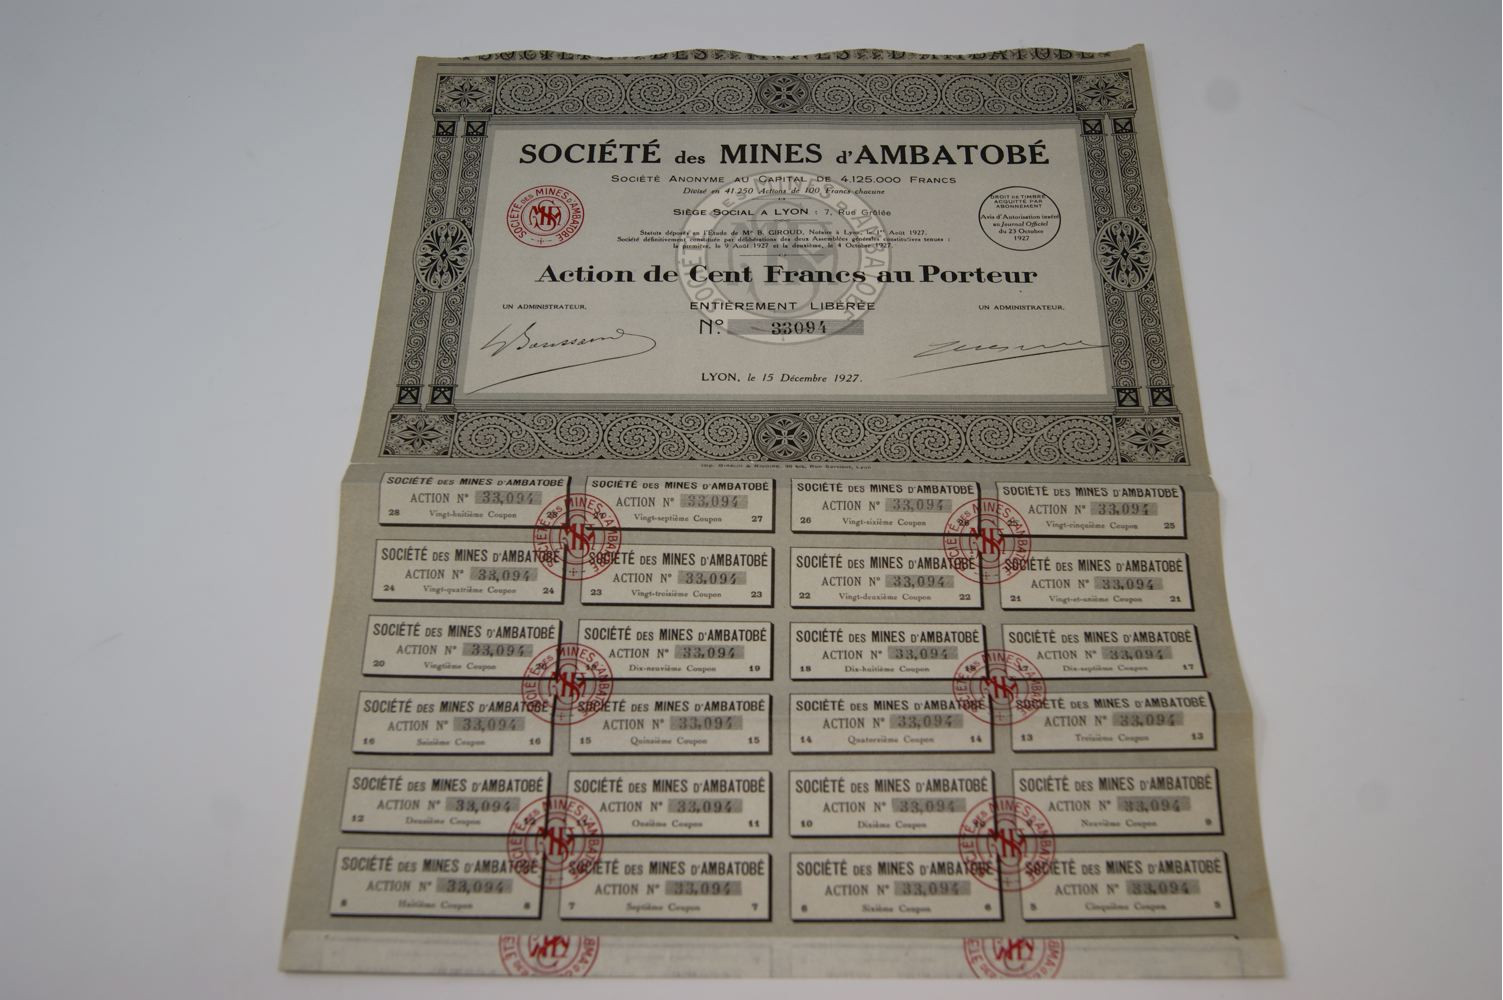 SOCIÉTÉ DES MINES D'AMBATOBÉ
SOCIÉTÉ des MINES d'AMBATOBÉ
SOCIÉTÉ ANONYME AU CAPITAL DE 4.125.000 FRANCS
Divisé en 41.250 Actions de 100 Francs chacune
SIÈGE SOCIAL A LYON : 7, Rue Grôlée
Statuts déposés en l'Étude de Me B. GIROUD, Notaire à Lyon, le 1er Août 1927.
Société définitivement constituée par délibérations des deux Assemblées générales constitutives tenues :
la première, le 9 Août 1927 et la deuxième, le 4 Octobre 1927.
SOCIÉTÉ DES MINES D'AMBATOBÉ
DROIT DE TIMBRE
ACQUITTÉ PAR
ABONNEMENT
Avis d'Autorisation inséré
au Journal Officiel
du 23 Octobre
1927
Action de Cent Francs au Porteur
ENTIÈREMENT LIBÉRÉE
UN ADMINISTRATEUR,
UN ADMINISTRATEUR,
N° 33094
LYON, le 15 Décembre 1927.
SOCIÉTÉ DES MINES D'AMBATOBÉ
ACTION N° 33,094
28 Vingt-huitième Coupon 28
SOCIÉTÉ DES MINES D'AMBATOBÉ
ACTION N° 33,094
27 Vingt-septième Coupon 27
SOCIÉTÉ DES MINES D'AMBATOBÉ
ACTION N° 33,094
26 Vingt-sixième Coupon 26
SOCIÉTÉ DES MINES D'AMBATOBÉ
ACTION N° 33,094
25 Vingt-cinquième Coupon 25
SOCIÉTÉ DES MINES D'AMBATOBÉ
ACTION N° 33,094
24 Vingt-quatrième Coupon 24
SOCIÉTÉ DES MINES D'AMBATOBÉ
ACTION N° 33,094
23 Vingt-troisième Coupon 23
SOCIÉTÉ DES MINES D'AMBATOBÉ
ACTION N° 33,094
22 Vingt-deuxième Coupon 22
SOCIÉTÉ DES MINES D'AMBATOBÉ
ACTION N° 33,094
21 Vingt-et-unième Coupon 21
SOCIÉTÉ DES MINES D'AMBATOBÉ
ACTION N° 33,094
20 Vingtième Coupon 20
SOCIÉTÉ DES MINES D'AMBATOBÉ
ACTION N° 33,094
19 Dix-neuvième Coupon 19
SOCIÉTÉ DES MINES D'AMBATOBÉ
ACTION N° 33,094
18 Dix-huitième Coupon 18
SOCIÉTÉ DES MINES D'AMBATOBÉ
ACTION N° 33,094
17 Dix-septième Coupon 17
SOCIÉTÉ DES MINES D'AMBATOBÉ
ACTION N° 33,094
16 Seizième Coupon 16
SOCIÉTÉ DES MINES D'AMBATOBÉ
ACTION N° 33,094
15 Quinzième Coupon 15
SOCIÉTÉ DES MINES D'AMBATOBÉ
ACTION N° 33,094
14 Quatorzième Coupon 14
SOCIÉTÉ DES MINES D'AMBATOBÉ
ACTION N° 33,094
13 Treizième Coupon 13
SOCIÉTÉ DES MINES D'AMBATOBÉ
ACTION N° 33,094
12 Douzième Coupon 12
SOCIÉTÉ DES MINES D'AMBATOBÉ
ACTION N° 33,094
11 Onzième Coupon 11
SOCIÉTÉ DES MINES D'AMBATOBÉ
ACTION N° 33,094
10 Dixième Coupon 10
SOCIÉTÉ DES MINES D'AMBATOBÉ
ACTION N° 33,094
9 Neuvième Coupon 9
SOCIÉTÉ DES MINES D'AMBATOBÉ
ACTION N° 33,094
8 Huitième Coupon 8
SOCIÉTÉ DES MINES D'AMBATOBÉ
ACTION N° 33,094
7 Septième Coupon 7
SOCIÉTÉ DES MINES D'AMBATOBÉ
ACTION N° 33,094
6 Sixième Coupon 6
SOCIÉTÉ DES MINES D'AMBATOBÉ
ACTION N° 33,094
5 Cinquième Coupon 5